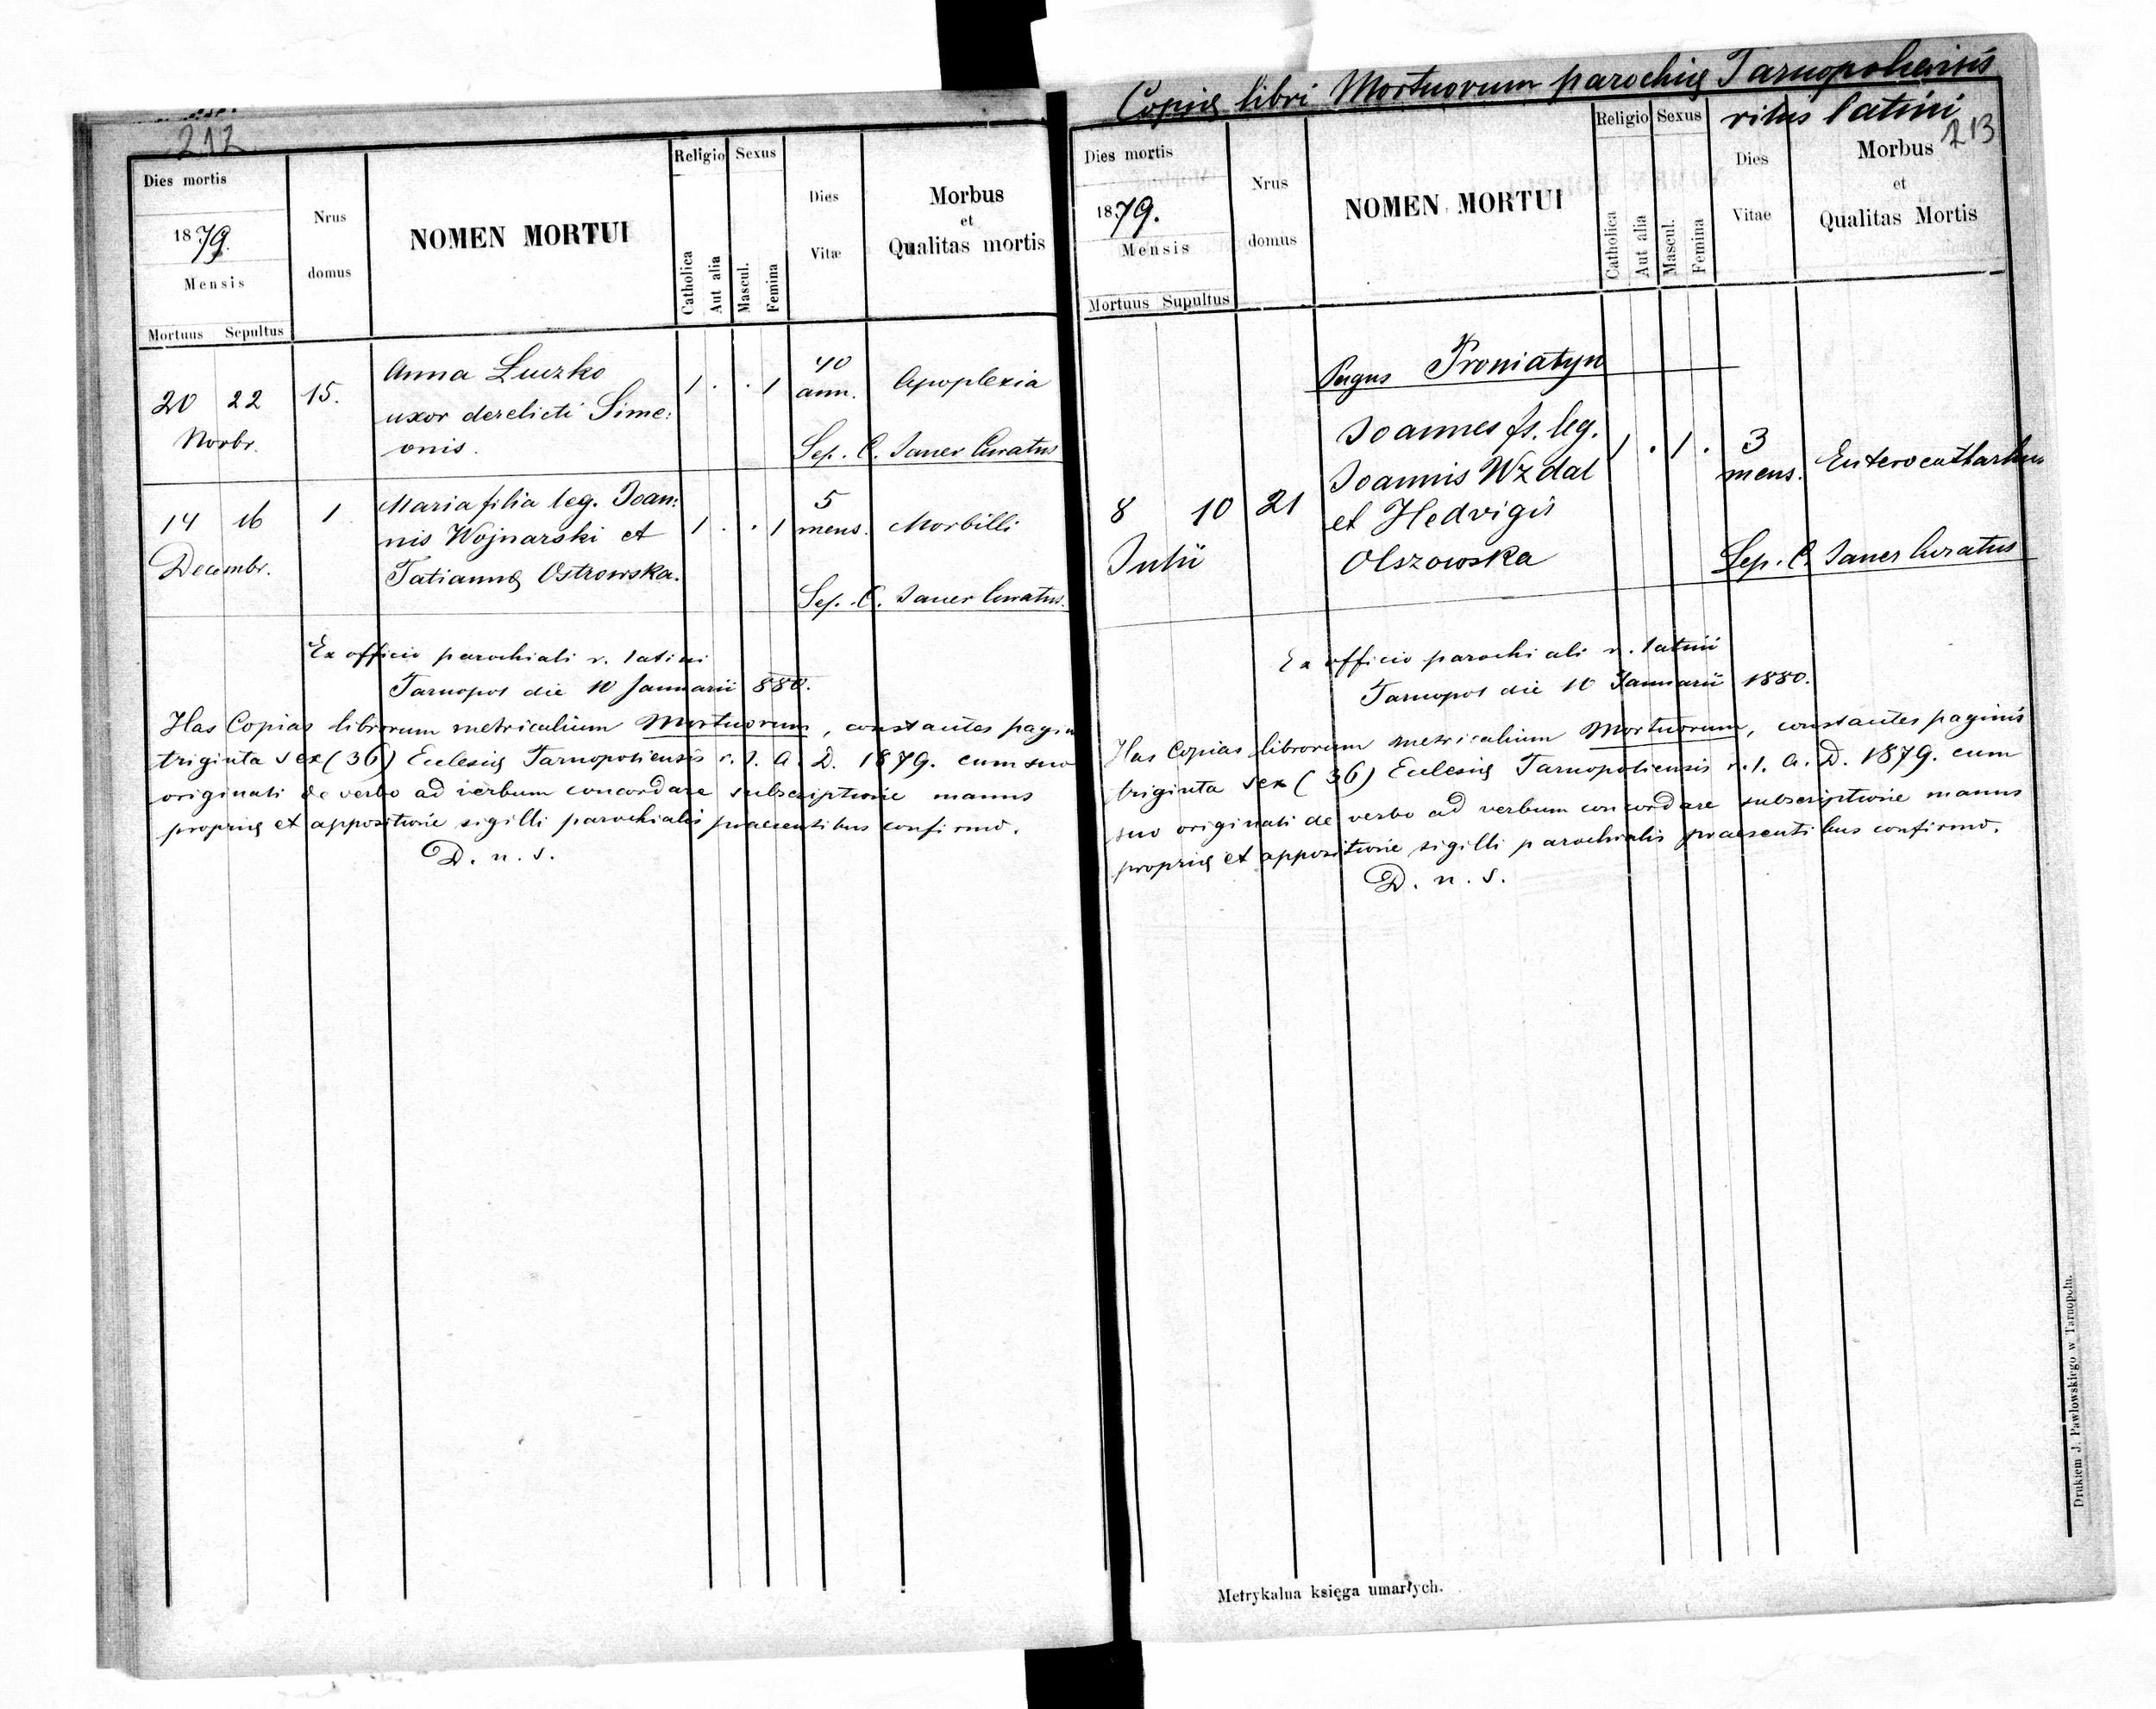 212
Dies mortis
1879.
Mensis
Mortuus Sepultus
Nrus
domus
NOMEN MORTUI
Religio
Catholica
Aut alia
Sexus
Mascul.
Femina
Dies
Vitæ
Morbus
et
Qualitas mortis
20 22 15. Anna Luczko 1 . . 1 40 ann. Apoplexia
Novbr. uxor derelicti Sime:
onis. Sep. C. Janer Curatus
14 16 1 Maria filia leg. Joan: 1 . . 1 5 mens. Morbilli
Decembr. nis Wojnarski et
Tatiannę Ostrowska.
Sep. C. Janer Curatus.
Ex officio parochiali r. latini
Tarnopol die 10 Januarii 880.
Has Copias librorum metricalium Mortuorum, constantes pagin
triginta sex (36) Ecclesię Tarnopoliensis r. l. A. D. 1879. cum suo
originali de verbo ad verbum concordare subscriptione manus
proprię et appositione sigilli parochialis praesentibus confirmo.
D. n. s.
Copię libri Mortuorum parochię Tarnopoliensis
ritus latini
213
Dies mortis
1879.
Mensis
Mortuus Supultus
Nrus
domus
NOMEN MORTUI
Religio
Catholica
Aut alia
Sexus
Mascul.
Femina
Dies
Vitae
Morbus
et
Qualitas Mortis
Pagus Proniatyn
Joannes fs. leg. 1 . 1 . 3 mens. Enterocatharhus
Joannis Wzdal
8 10 21 et Hedvigis
Julii Olszowska Sep. C. Janer Curatus
Ex officio parochiali r. latini
Tarnopol die 10 Januarii 1880.
Has Copias librorum metricalium Mortuorum, constantes paginis
triginta sex (36) Ecclesię Tarnopoliensis r. l. A. D. 1879. cum
suo originali de verbo ad verbum concordare subscriptione manus
proprię et appositione sigilli parochialis praesentibus confirmo.
D. n. s.
Metrykalna księga umarłych.
Drukiem J. Pawłowskiego w Tarnopolu.